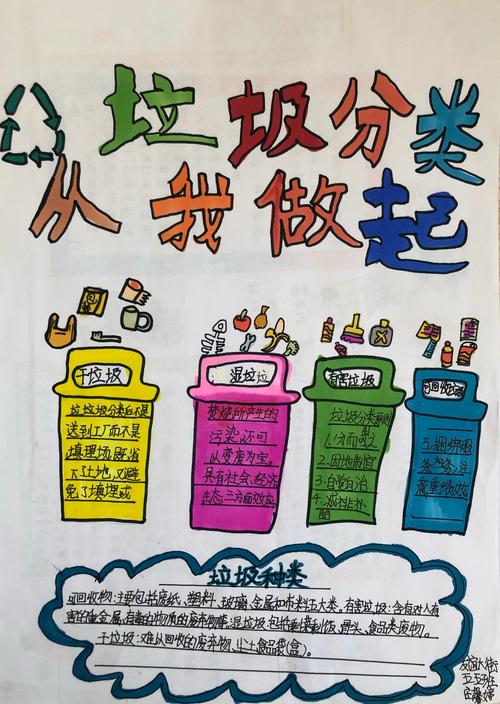 垃圾分类
从我做起
干垃圾
垃圾分类后不是
送到工厂而不是
填埋场既省
下土地,又避
免了填埋或
湿垃圾
焚烧所产生的
污染,还可
以变废为宝。
具有社会、经济
生态三方面效益
有害垃圾
垃圾分类原则
1.分而
2.因地制宜
3.自觉自治
4.减排补
可回收
5.捆绑
意重
垃圾种类
可回收物:主要包括废纸、塑料、玻璃、金属和布料五大类。有害垃圾:含有对人有
害的重金属、有毒的物质的废弃物。湿垃圾:包括剩饭、骨头、食品类废物。
干垃圾:难以回收的废弃物、尘土食品袋(盒)。